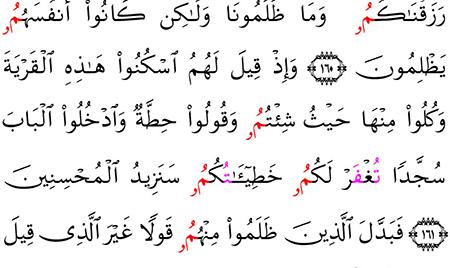 رَزَقْنَٰكُمُۥ وَمَا ظَلَمُونَا وَلَٰكِن كَانُواْ أَنفُسَهُمُۥ
يَظْلِمُونَ ١٦٠ وَإِذْ قِيلَ لَهُمُ ٱسْكُنُواْ هَٰذِهِ ٱلْقَرْيَةَ
وَكُلُواْ مِنْهَا حَيْثُ شِئْتُمُۥ وَقُولُواْ حِطَّةٌ وَٱدْخُلُواْ ٱلْبَابَ
سُجَّدًا تُغْفَرْ لَكُمُۥ خَطِيٓـَٰٔتُكُمُۥ سَنَزِيدُ ٱلْمُحْسِنِينَ
١٦١ فَبَدَّلَ ٱلَّذِينَ ظَلَمُواْ مِنْهُمُۥ قَوْلًا غَيْرَ ٱلَّذِى قِيلَ